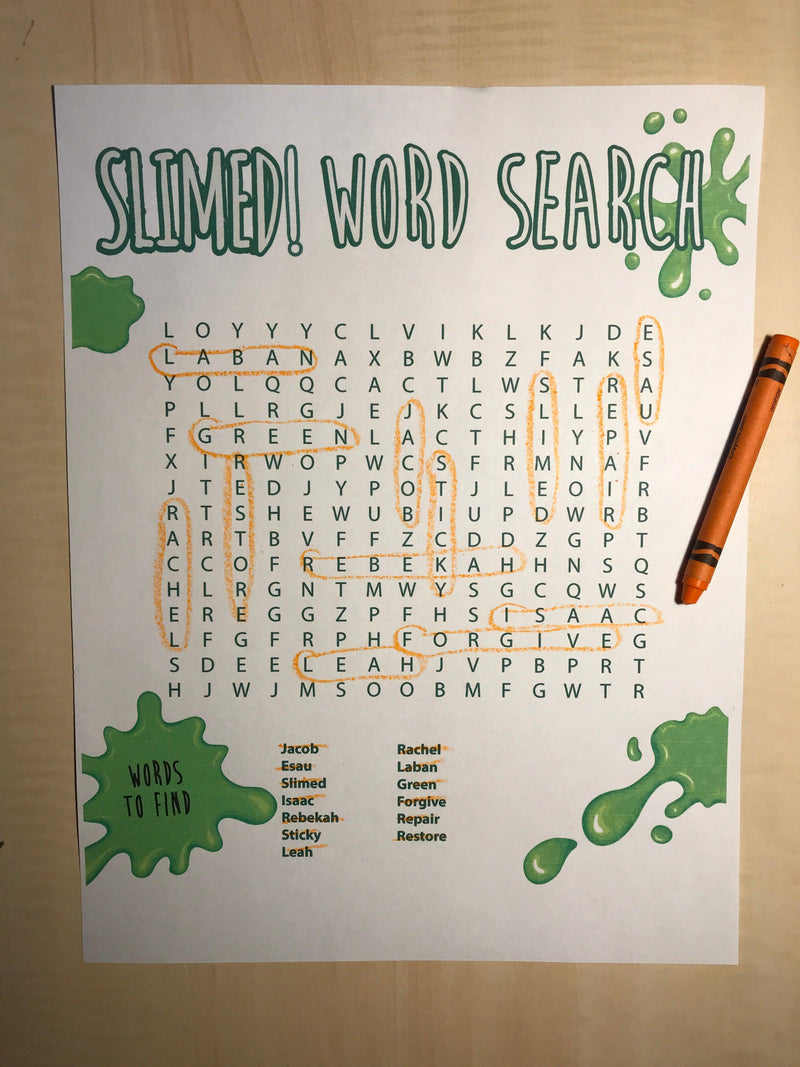 SLIMED! WORD SEARCH
L O Y Y Y C L V I K L K J D E
L A B A N A X B W B Z F A K S
Y O L Q Q C A C T L W S T R A
P L L R G J E J K C S L L E U
F G R E E N L A C T H I Y P V
X I R W O P W C S F R M N A F
J T E D J Y P O T J L E O I R
R T S H E W U B I U P D W R B
A R T B V F F Z C D D Z G P T
C C O F R E B E K A H H N S Q
H L R G N T M W Y S G C Q W S
E R E G G Z P F H S I S A A C
L F G F R P H F O R G I V E G
S D E E L E A H J V P B P R T
H J W J M S O O B M F G W T R
WORDS
TO FIND
Jacob
Esau
Slimed
Isaac
Rebekah
Sticky
Leah
Rachel
Laban
Green
Forgive
Repair
Restore